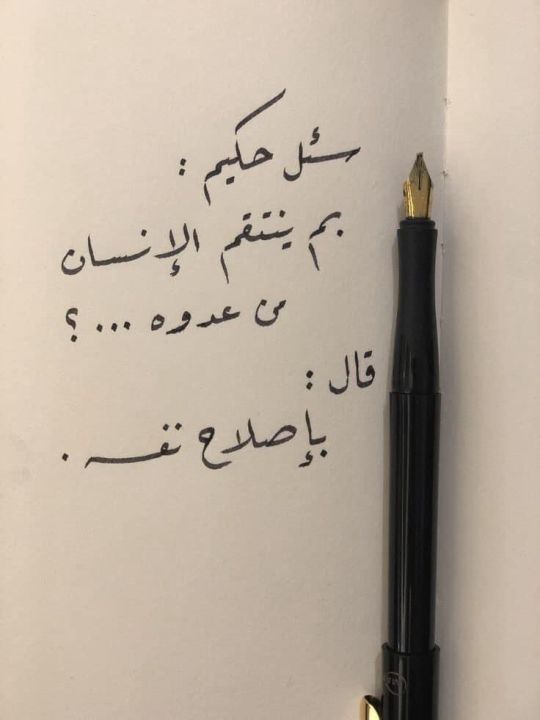 سئل حكيم :
بم ينتقم الإنسان
من عدوه ... ؟
قال :
بإصلاح نفسه .